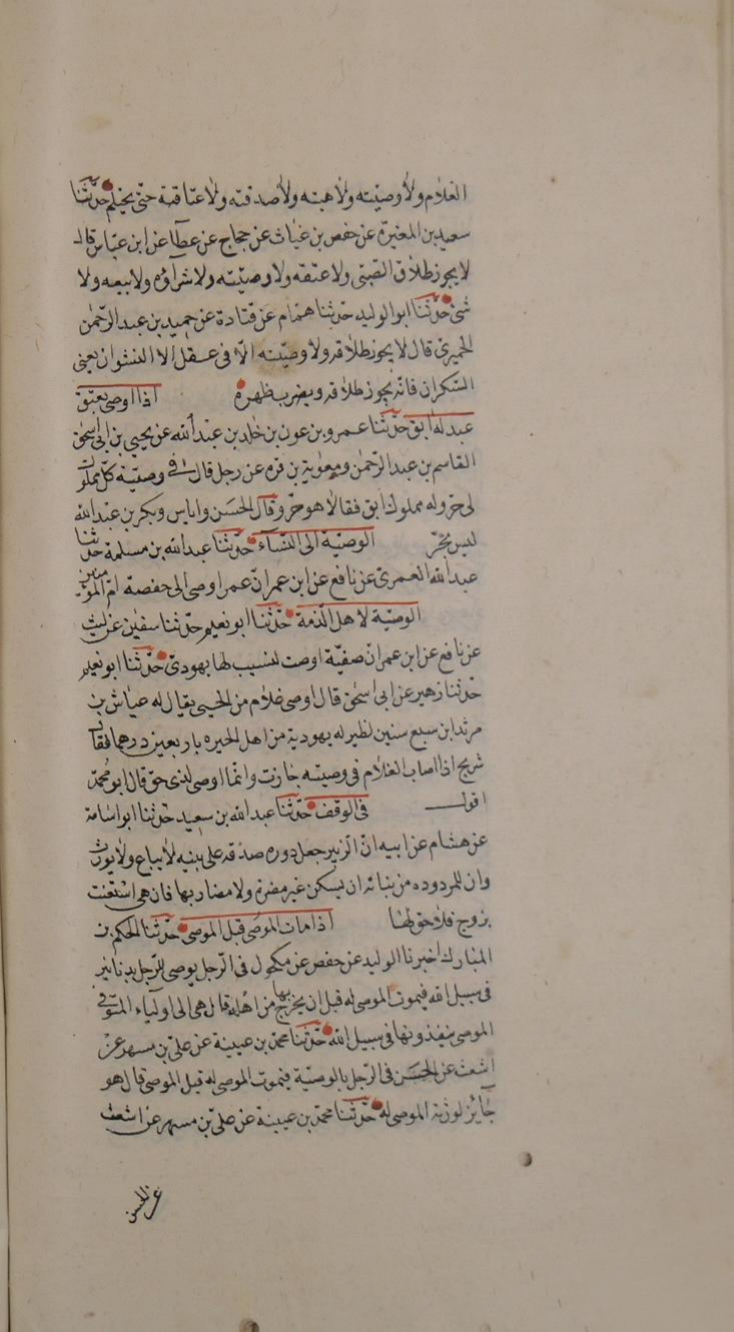 الغلام ولا وصيته ولا هبته ولا صدقته ولا عتاقته حتى يحتلم حدثنا
سعيد بن المغيرة عن حفص بن غياث عن حجاج عن عطا عن ابن عباس قال
لا يجوز طلاق الصبى ولا عتقه ولا وصيته ولا شراؤه ولا بيعه ولا
شئ حدثنا ابو الوليد حدثنا همام عن قتادة عن حميد بن عبد الرحمن
الحميرى قال لا يجوز طلاقه ولا وصيته الا فى عقل الا النشوان يعنى
السكران فانه يجوز طلاقه ويضرب ظهره اذا اوصى بعتق
عبد له ابق حدثنا عمرو بن عون بن خالد بن عبد الله عن يحيى بن ابى اسحق
القاسم بن عبد الرحمن ومعوية بن قره عن رجل قال فى وصيته كل مملوك
لى حر وله مملوك ابق فقالا هو حر وقال الحسن واياس وبكر بن عبد الله
ليس بحر الوصية الى النساء حدثنا عبد الله بن مسلمة حدثنا
عبد الله العمرى عن نافع عن ابن عمر ان عمر اوصى الى حفصة ام المومنين
الوصية لاهل الذمة حدثنا ابو نعيم حدثنا سفين عن ليث
عن نافع عن ابن عمر ان صفية اوصت لنسيب لها يهودى حدثنا ابو نعيم
حدثنا زهير عن ابى اسحق قال اوصى غلام من الحيى يقال له عياش بن
مرثد ابن سبع سنين لظير له يهودية من اهل الحيره باربعين درهما فقال
شريح اذا اصاب الغلام فى وصيته جازت وانما اوصى لذى حق قال ابو محمد
اقول فى الوقف حدثنا عبد الله بن سعيد حدثنا ابو اسامة
عن هشام عن ابيه ان الزبير جعل دوره صدقه على بنيه لا يباع ولا يورث
وان للمردوده من بناته ان يسكن غير مضرة ولا مضار بها فان هى استغنت
بزوج فلا حق لها اذا مات الموصى قبل الموصى حدثنا الحكم بن
المبارك اخبرنا الوليد عن حفص عن مكحول فى الرجل يوصى للرجل بدنانير
فى سبيل الله فيموت الموصى له قبل ان يخرج بها من اهله قال هى الى اولياء المتوفى
الموصى ينفذونها فى سبيل الله حدثنا محمد بن عيينة عن على بن مسهر عن
اشعث عن الحسن فى الرجل بالوصية فيموت الموصى له قبل الموصى قال هو
جائز لورثة الموصى له حدثنا محمد بن عيينة عن على بن مسهر عن اشعث
عن الحسن